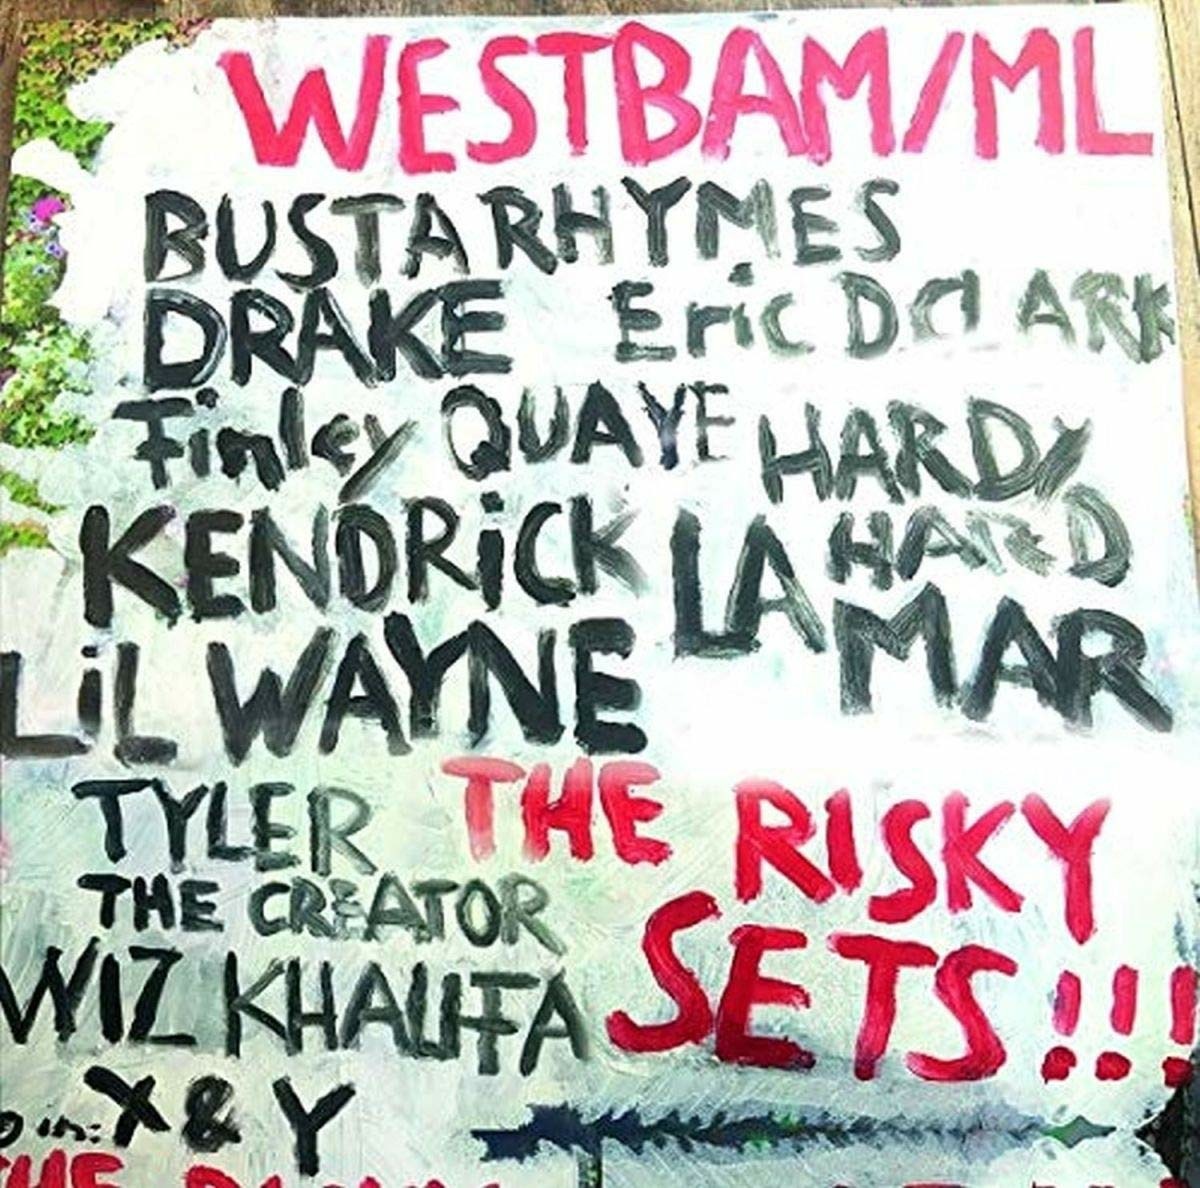 WESTBAM/ML
BUSTA RHYMES
DRAKE Eric D.ClARK
Finley QUAYE HARDY
HARD
KENDRiCK LAMAR
LiL WAYNE
TYLER THE RISKY
THE CREATOR SETS!!!
WIZ KHALIFA
in: X & Y
THE